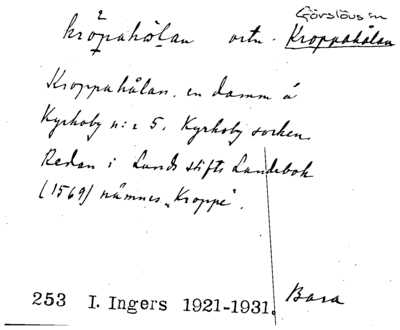 Görslövs sn
kröpahålan ortn. Kroppahålan
Kroppahålan, en damm å
Kyrkoby n:r 5, Kyrkoby socken.
Redan i Lunds stifts Landebok
(1569) nämnes "Kroppe".
253 I. Ingers 1921-1931. Bara